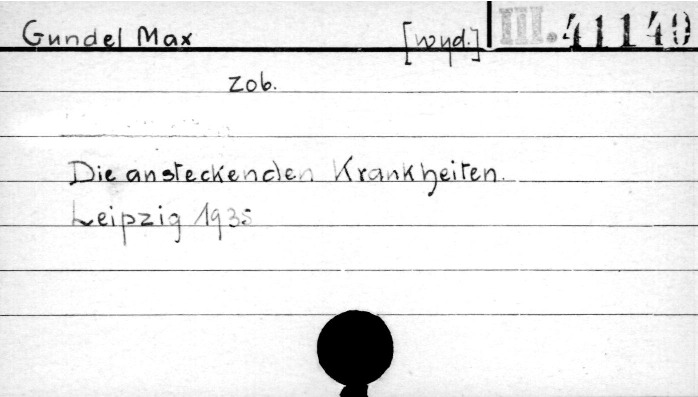 Gundel Max [wyd.] III. 41140
zob.
Die ansteckenden Krankheiten.
Leipzig 1935